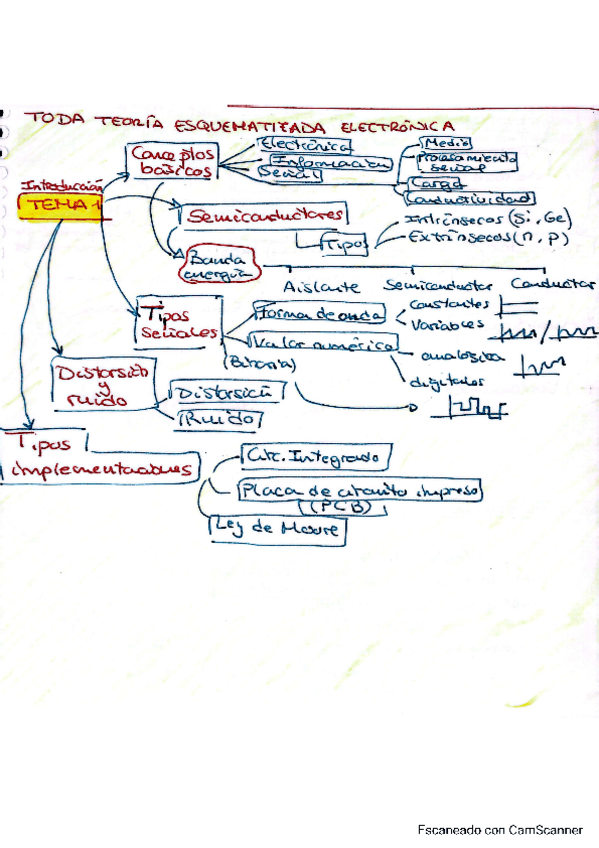 TODA TEORÍA ESQUEMATIZADA ELECTRÓNICA
Introducción
TEMA 1
Conceptos
básicos
Electrónica
Información
Señal
Medio
Procesamiento
señal
Carga
Conductividad
Semiconductores
Tipos
Intrínsecos (Si, Ge)
Extrínsecos (n, p)
Banda
energía
Aislante Semiconductor Conductor
Tipos
señales
Forma de onda
constantes
Variables
Valor numérico
analógica
digitales
Distorsión
y
ruido
Distorsión
Ruido
Tipos
implementaciones
Circ. Integrado
Placa de circuito impreso
(PCB)
Ley de Moore
Escaneado con CamScanner